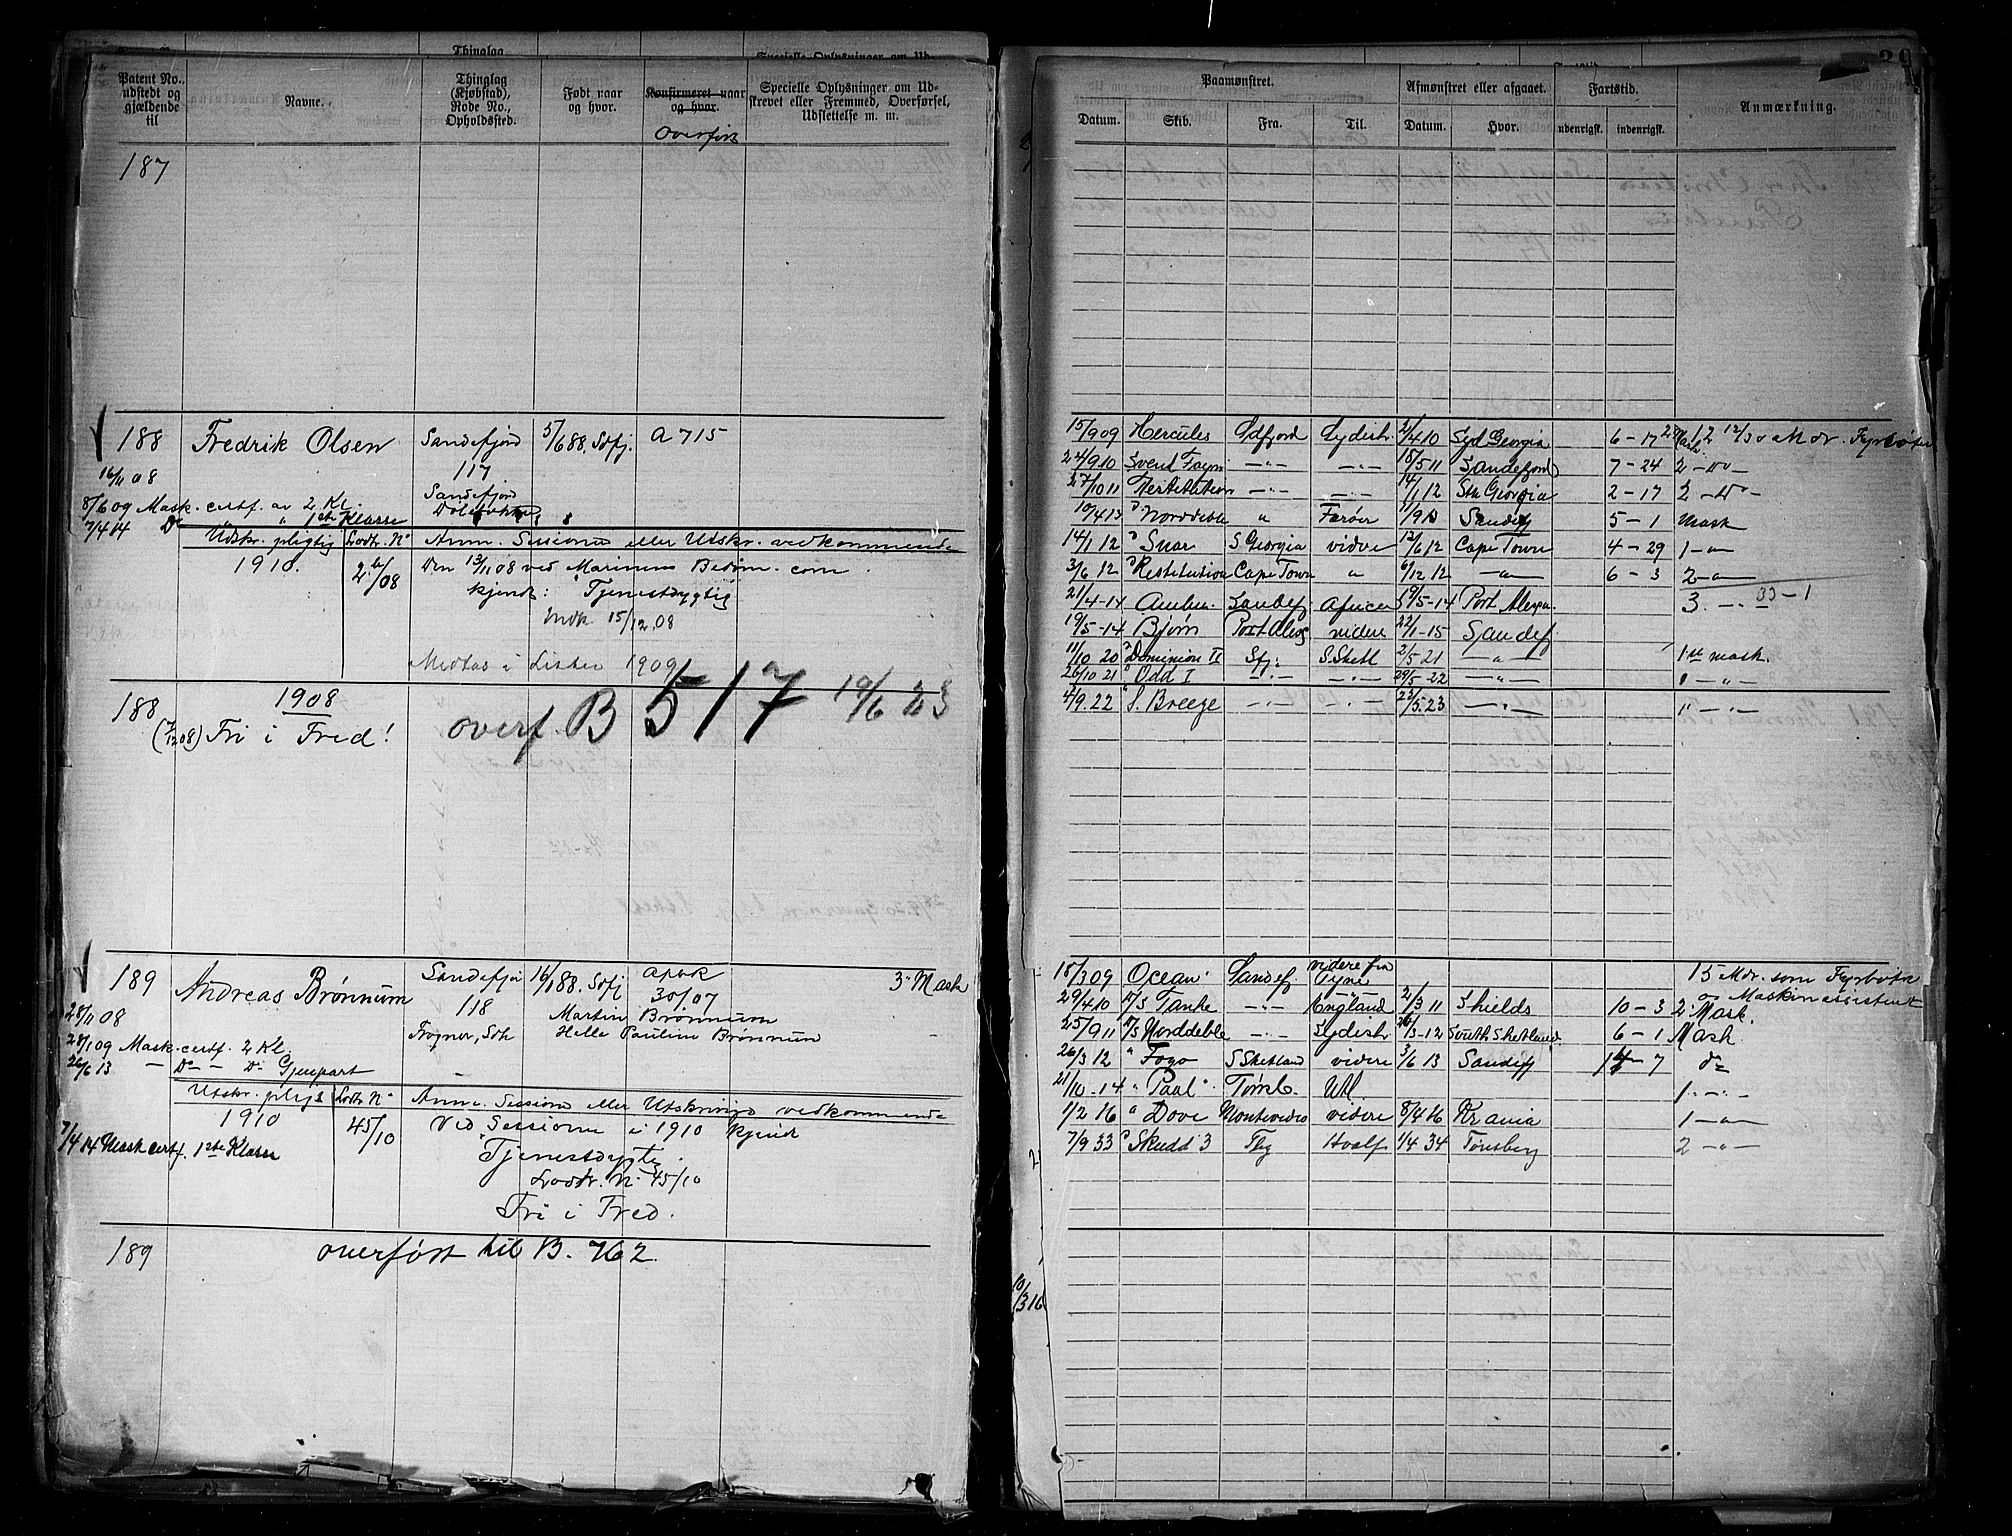 Patent No., udstedt og gjældende til
Navne.
Thinglag (Kjøbstad), Rode No., Opholdssted.
Født naar og hvor.
Konfirmeret naar og hvor.
overført
Specielle Oplysninger om Udstrevet eller Fremmed, Overførsel, Udslettelse m. m.
187
188 Fredrik Olsen Sandefjord 5/6 88. Sdfj. A 715
117
16/11 08
Sandefjord
8/6 09 Mask. certf. av 2 Kl.
7/4 14 Do " 1ste Klasse
Udskr. pligtig Lodtr. No Anm. Sessions eller Utskr. vedkommende
1910. 2 b/08 Den 13/11 08 ved Marinens Bedøm. com.
kjendt: Tjenestdygtig
Indk 15/12 08
Medtas i Listen 1909
188 1908
(7/12 08) Fri i Fred! overf. B 517 19/6 23
189 Andreas Brønnum Sandefjor 16/1 88. Sdfj apbok 3. Mask
118 30/07
28/11 08 Martin Brønnum
Fogner, Sdh Helle Pauline Brønnum
28/1 09 Mask. certf. 2 Kl
26/6 13 — Do — Do Gjenpart
Utskr. pligt Lodtr No Anm. Sessions eller Utskrivngs vedkommende
1910 45/10 Ved Sessionen i 1910 kjendt
7/4 14 Mask certf. 1ste Klasse Tjenestdygtig.
Lodtr. No 45/10
Fri i Fred.
189 overført til B. 762
Paamønstret.
Afmønstret eller afgaaet.
Fartstid.
Anmærkning.
Datum. Skib. Fra. Til. Datum. Hvor. udenrigsk. indenrigsk.
15/9 09 Hercules Sdfjord Sydish 2/4 10 Syd Georgia 6-17 12 12/30 Mdr. Fyrbøter
24/9 10 Svend Foyn —"— —"— 18/5 11 Sandefjord 7-24 2 —"—
27/10 11 Restitution —"— —"— 14/1 12 Sth Georgia 2-17 2 —Do—
10/4 13 " Norddeble " Færøer 11/9 13 Sandefj 5-1 Mask
14/1 12 " Svar S Georgia vidre 12/6 12 Cape Town 4-29 1 —"—
3/6 12 " Restitution Cape Town " 6/12 12 —"— 6-3 2 —"—
21/4-14 Sandef Africa 19/5-14 Port Alexa. 3. —"— 33-1
19/5-14 Bjørn Port Alexs videre 22/1-15 Sandef
11/10 20 " Dominion II Sfj: S. Shetl 2/5 21 —"— 1ste mask.
26/10 21 " Odd I —"— —"— 29/5-22 —"— 1 —"—
4/9.22 " S. Breeze —"— —"— 22/5.23 —"— 1. —"—
18/3 09 Ocean Sandef videre fra Tyne 15 Mdr. som Fyrbøter og Maskinassistent
29/4 10 D/S Tanke —"— England 2/3 11 Shields 10-3 2 Mask.
25/9 11 D/S Norddeble —"— Sydish 26/3-12 South Shetland 6-1 Mask.
26/3 12 " Fogo S Shetland videre 3/6 13 Sandefj 14-7 do
21/10-14 " Paal Tønsb. Utl. 1. —"—
1/2 16 " Dove Montevideo videre 8/4 16 Krania 1 —"—
7/9 33 " Skudd 3 Tbg Hvalf 1/4 34 Tønsberg 2 —"—
10/3 16